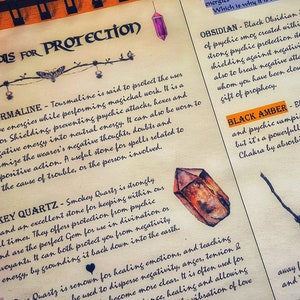 OLS FOR PROTECTION
RMALINE - Tourmaline is said to protect the user
energies while performing magickal work. It is a
for Shielding, preventing psychic attacks, hexes and
ative energy into neutral energy. It can also be worn to
imize the wearer's negative thoughts, doubts and
positive action. A useful stone for spells related to
the cause of trouble, or the person involved.
KEY QUARTZ - Smokey Quartz is strongly
and an excellent stone for keeping within our
ll times. They offers protection from psychic
nd are the perfect Gem for use in divination or
rvoyants. It can both protect you from negativity
energy, by grounding it back down into the earth.
Quartz is renown for healing emotions, and teaching
be used to disperse negativity, anger, tension &
become more clear. It is often used for
healing and allowing
love
energies
Which is why it
OBSIDIAN - Black Obsidian
of psychic smog, created within
strong psychic protection
shielding against negativity
also to break negative attach
whom you have been close
gift of prophecy.
BLACK AMBER
and psychic vampires
but it's a powerful
Chakra by absorb
away
and